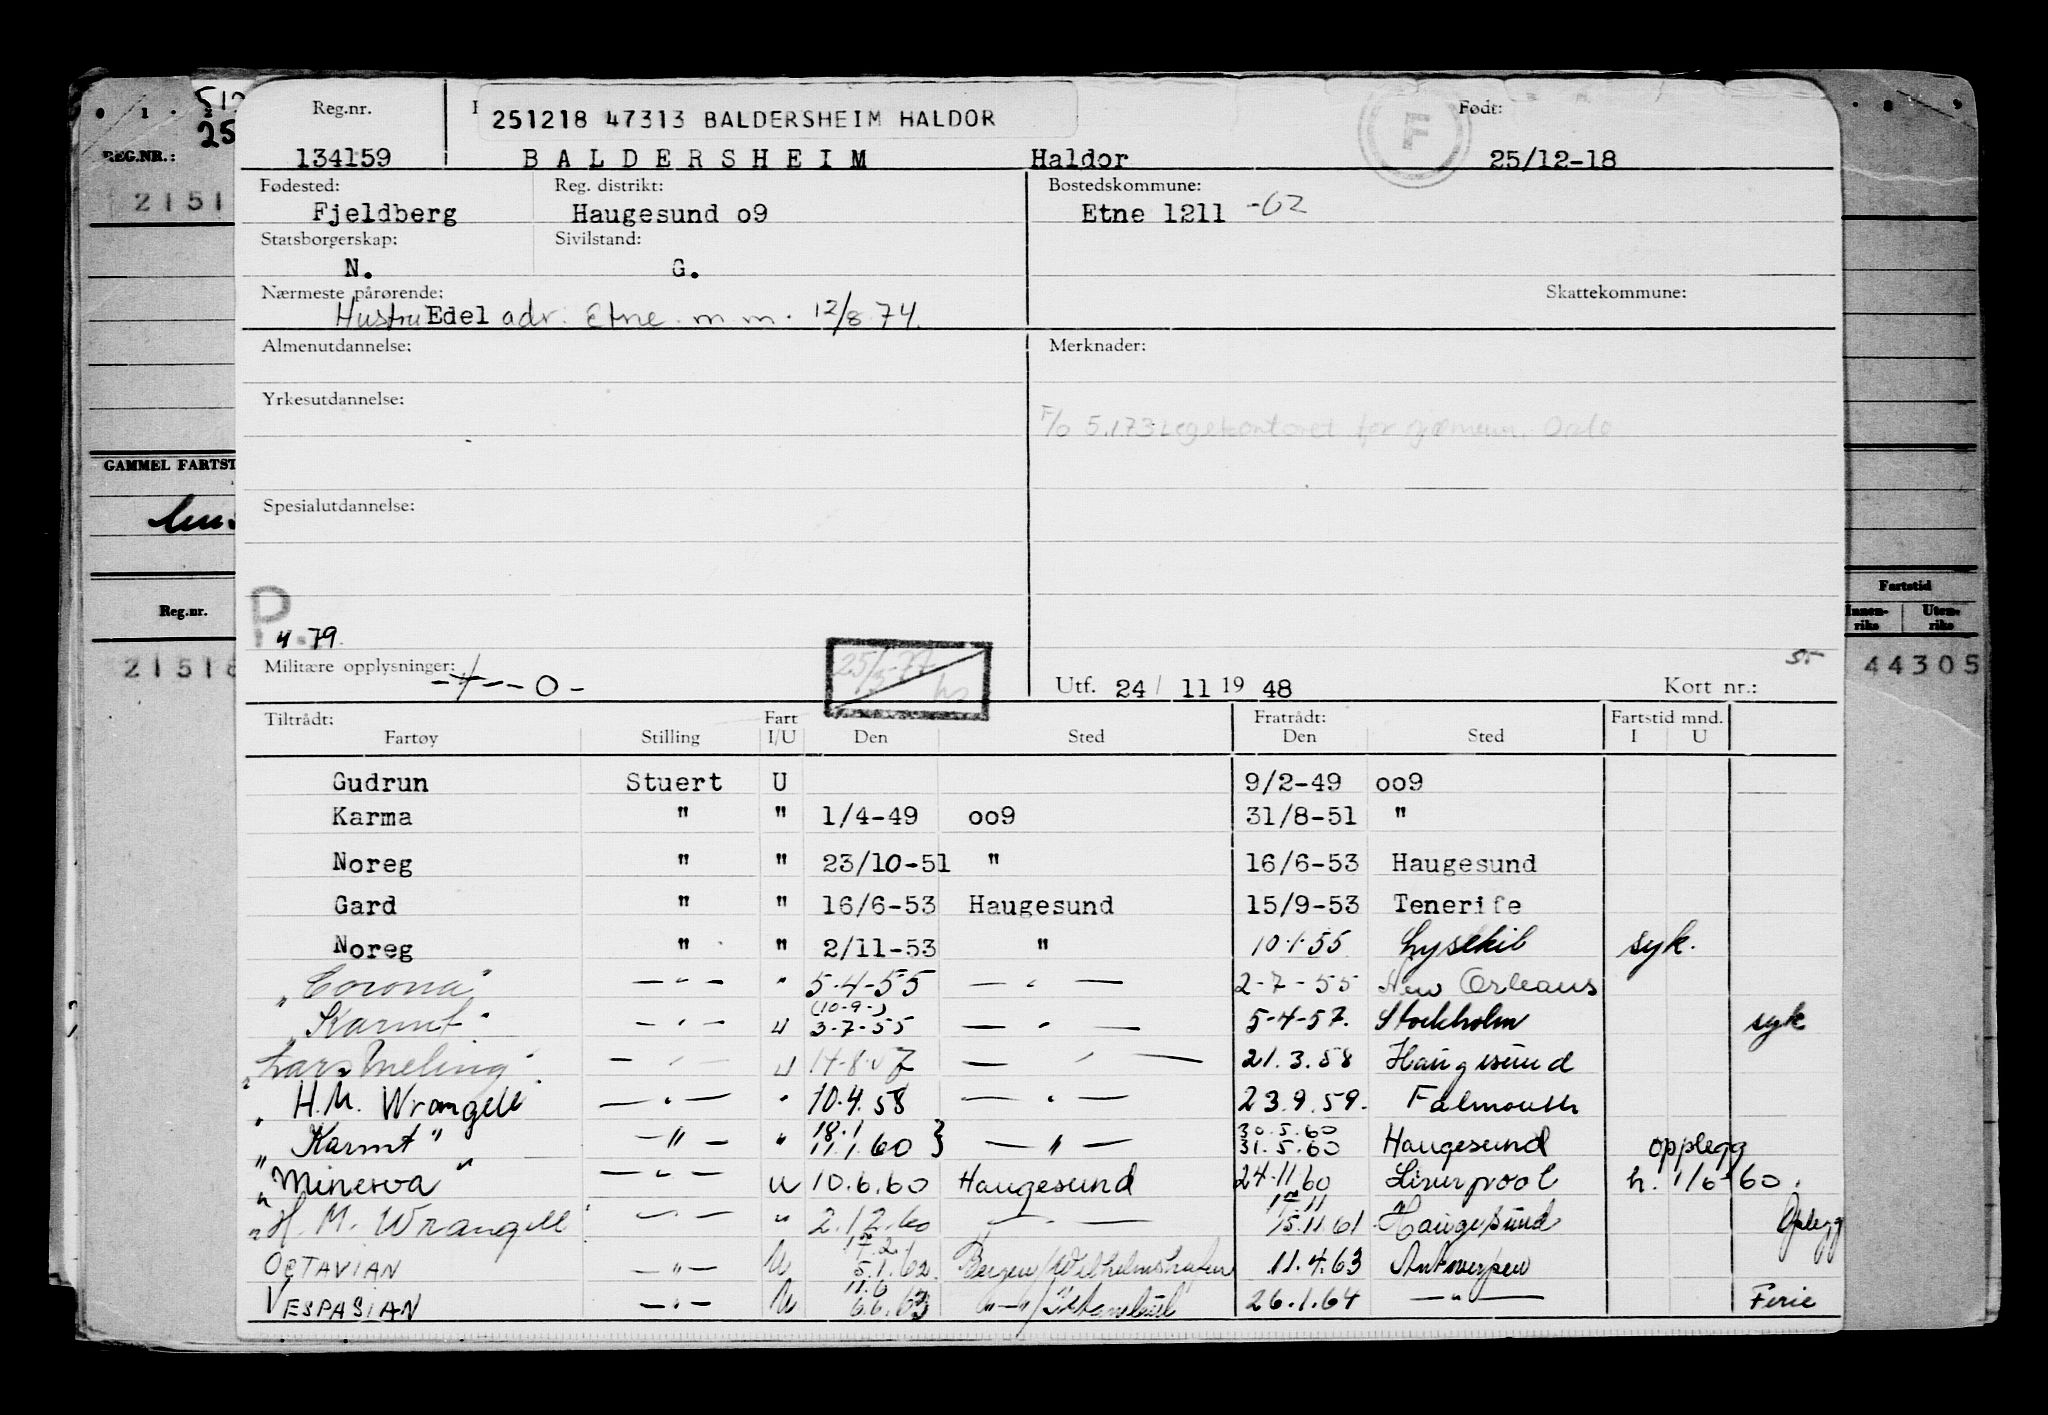 0 1 512 8 9
Reg.nr. 251218 47313 BALDERSHEIM HALDOR F Født:
REG.NR.: 25 134159 BALDERSHEIM Haldor 25/12-18
Fødested: Reg. distrikt: Bostedskommune:
2151 Fjeldberg Haugesund o9 Etne 1211 -62
Statsborgerskap: Sivilstand:
N. G.
Nærmeste pårørende: Skattekommune:
Hustru Edel adr. Etne m.m. 12/8 74.
Almenutdannelse: Merknader:
Yrkesutdannelse:
F/o 5.173 Legekontoret for sjømenn. Oslo
GAMMEL FARTST
Spesialutdannelse:
Fartstid
P. Innen-riks Uten-riks
Reg.nr.
4.79.
21518 Militære opplysninger: -+--0- 25/3-77 Utf. 24/11 19 48 Kort nr.: 44305
Tiltrådt: Fart Fratrådt: Fartstid mnd.
Fartøy Stilling I/U Den Sted Den Sted I U
Gudrun Stuert U 9/2-49 oo9
Karma " " 1/4-49 oo9 31/8-51 "
Noreg " " 23/10-51 " 16/6-53 Haugesund
Gard " " 16/6-53 Haugesund 15/9-53 Tenerife
Noreg " " 2/11-53 " 10.1.55 Lysekil syk.
"Corona" —"— " 5-4-55 —"— 2-7-55 New Orleans
(10-9-)
"Karmt" —"— u 3-7-55 —"— 5-4-57. Stockholm syk
"Lars Meling" —"— u 14-8-57 —"— 21.3.58 Haugesund
" H.M. Wrangell —"— " 10.4.58 —"— 23.9.59. Falmouth
18.1 30.5.60
"Karmt" —"— " 11.1.60 } —"— 31.5.60 Haugesund opplegg
"Minerva" —"— u 10.6.60 Haugesund 24.11.60 Liverpool h. 1/6-60.
"H. M. Wrangell —"— " 2.12.60 —"— 15.11.61 Haugesund Oplegg
OCTAVIAN —"— U 5.1.62. Bergen/Wilhelmshafen 11.4.63 Antwerpen
11.6
VESPASIAN —"— U 6.6.63 "—" 26.1.64 —"— Ferie